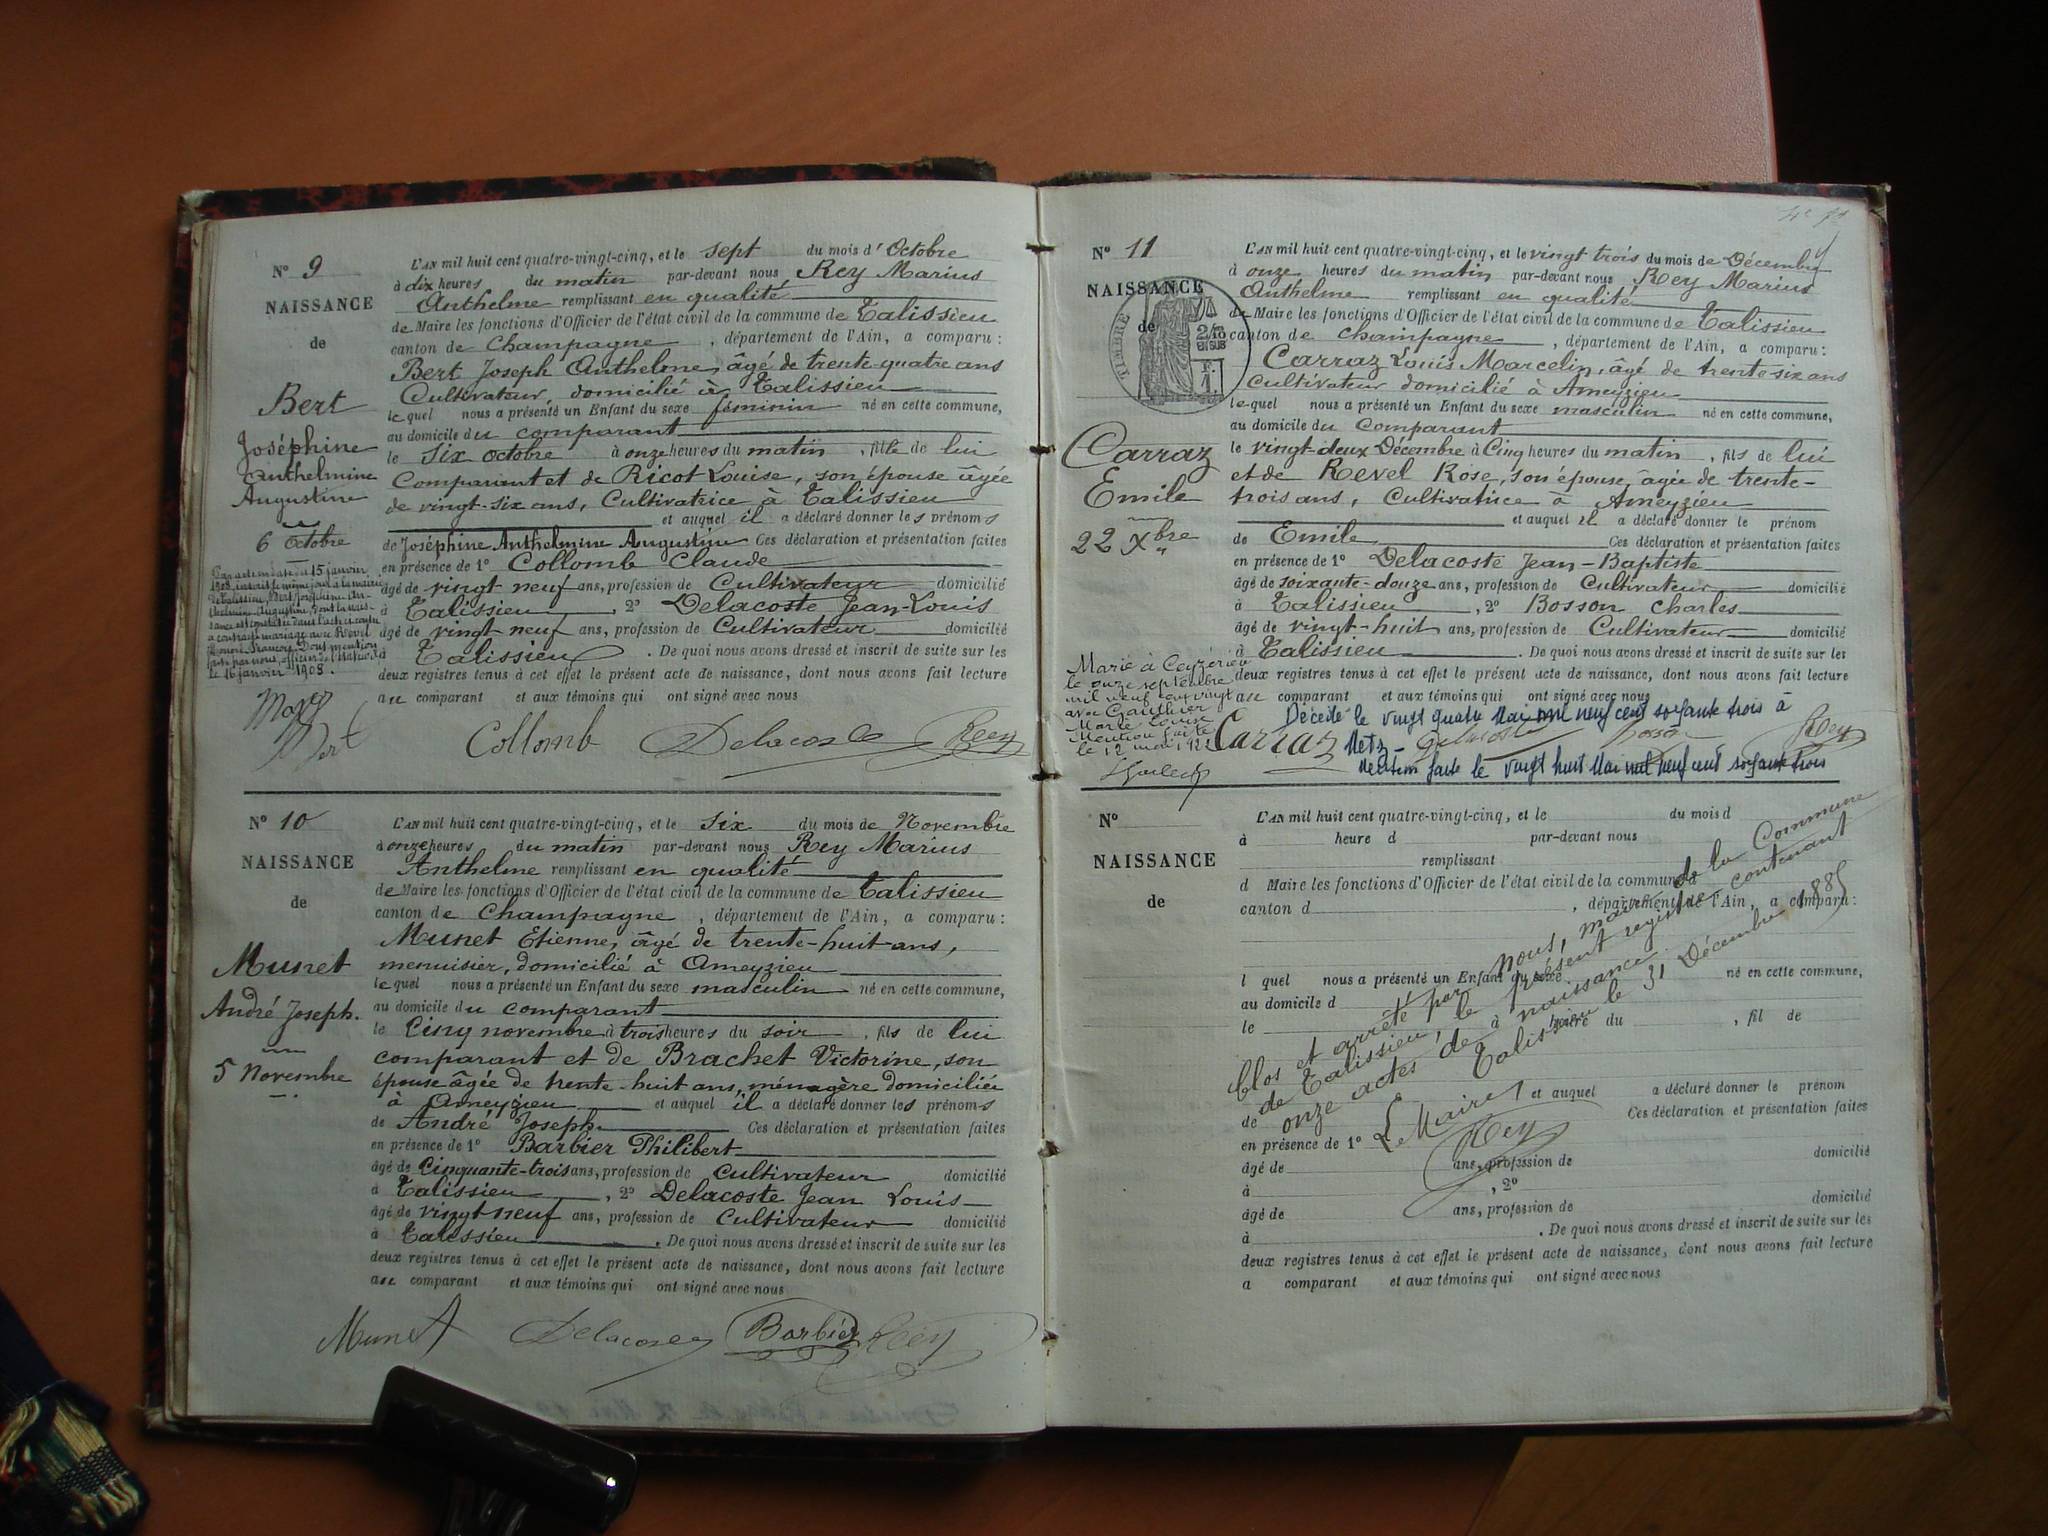 N° 9
NAISSANCE
de
Bert
Joséphine
Anthelmine
Augustine
6 Octobre
Par acte en date du 15 janvier
1908, inscrit le même jour à la mairie
de Talissieu, Bert Joséphine An-
thelmine Augustine, dont la nais-
sance est constatée dans l'acte ci-contre
a contracté mariage avec Revel
François. Dont mention
faite par nous, officier de l'état civil
le 16 janvier 1908.
L'AN mil huit cent quatre-vingt-cinq, et le sept du mois d'Octobre
à dix heures du matin par-devant nous Rey Marius
Anthelme remplissant en qualité
de Maire les fonctions d'Officier de l'état civil de la commune de Talissieu
canton de Champagne, département de l'Ain, a comparu :
Bert Joseph Anthelme, âgé de trente-quatre ans
Cultivateur, domicilié à Talissieu
lequel nous a présenté un Enfant du sexe féminin né en cette commune,
au domicile du comparant
le Six octobre à onze heures du matin, fille de lui
Comparant et de Ricot Louise, son épouse âgée
de vingt-six ans, Cultivatrice à Talissieu
et auquel il a déclaré donner les prénoms
de Joséphine Anthelmine Augustine Ces déclaration et présentation faites
en présence de 1° Collomb Claude
âgé de vingt neuf ans, profession de Cultivateur domicilié
à Talissieu, 2° Delacoste Jean-Louis
âgé de vingt-neuf ans, profession de Cultivateur domicilié
à Talissieu. De quoi nous avons dressé et inscrit de suite sur les
deux registres tenus à cet effet le présent acte de naissance, dont nous avons fait lecture
au comparant et aux témoins qui ont signé avec nous
Bert Collomb Delacoste Rey
N° 10
NAISSANCE
de
Munet
André Joseph.
5 Novembre
L'AN mil huit cent quatre-vingt-cinq, et le Six du mois de Novembre
à onze heures du matin par-devant nous Rey Marius
Anthelme remplissant en qualité
de Maire les fonctions d'Officier de l'état civil de la commune de Talissieu
canton de Champagne, département de l'Ain, a comparu :
Munet Etienne, âgé de trente-huit-ans,
menuisier, domicilié à Ameyzieu
lequel nous a présenté un Enfant du sexe masculin né en cette commune,
au domicile du comparant
le Cinq novembre à trois heures du soir, fils de lui
comparant et de Brachet Victorine, son
épouse âgée de trente-huit ans, ménagère domiciliée
à Ameyzieu et auquel il a déclaré donner les prénoms
de André Joseph. Ces déclaration et présentation faites
en présence de 1° Barbier Philibert
âgé de Cinquante-trois ans, profession de Cultivateur domicilié
à Talissieu, 2° Delacoste Jean Louis
âgé de vingt neuf ans, profession de Cultivateur domicilié
à Talissieu. De quoi nous avons dressé et inscrit de suite sur les
deux registres tenus à cet effet le présent acte de naissance, dont nous avons fait lecture
au comparant et aux témoins qui ont signé avec nous
Munet Delacoste Barbier Rey
N° 11
NAISSANCE
de
TIMBRE
2/10
EN SUS
Carraz
Emile
22 Xbre
Marié à Ceyzérieu
le onze septembre
mil neuf cent vingt
avec Gauthier
Marie Louise
Mention faite
le 12 mai 1921
L'AN mil huit cent quatre-vingt-cinq, et le vingt trois du mois de Décembre
à onze heures du matin par-devant nous Rey Marius
Anthelme remplissant en qualité
de Maire les fonctions d'Officier de l'état civil de la commune de Talissieu
canton de Champagne, département de l'Ain, a comparu :
Carraz Louis Marcelin, âgé de trente-six ans
Cultivateur domicilié à Ameyzieu
lequel nous a présenté un Enfant du sexe masculin né en cette commune,
au domicile du Comparant
le vingt-deux Décembre à Cinq heures du matin, fils de lui
et de Revel Rose, son épouse, âgée de trente-
trois ans, Cultivatrice à Ameyzieu
et auquel il a déclaré donner le prénom
de Emile Ces déclaration et présentation faites
en présence de 1° Delacoste Jean-Baptiste
âgé de soixante-douze ans, profession de Cultivateur domicilié
à Talissieu, 2° Bosson Charles
âgé de vingt-huit ans, profession de Cultivateur domicilié
à Talissieu. De quoi nous avons dressé et inscrit de suite sur les
deux registres tenus à cet effet le présent acte de naissance, dont nous avons fait lecture
au comparant et aux témoins qui ont signé avec nous
Décédé le vingt quatre Mai mil neuf cent soixante trois à
Metz -
Carraz Delacoste Bosson Rey
Mention faite le vingt huit Mai mil neuf cent soixante trois
N°
NAISSANCE
de
L'AN mil huit cent quatre-vingt-cinq, et le du mois d
à heure d par-devant nous
remplissant
d Maire les fonctions d'Officier de l'état civil de la commune d
canton d , département de l'Ain, a comparu :
l quel nous a présenté un Enfant du sexe né en cette commune,
au domicile d
le à heure du , fil de
et auquel a déclaré donner le prénom
de Ces déclaration et présentation faites
en présence de 1°
âgé de ans, profession de domicilié
à , 2°
âgé de ans, profession de domicilié
à . De quoi nous avons dressé et inscrit de suite sur les
deux registres tenus à cet effet le présent acte de naissance, dont nous avons fait lecture
a comparant et aux témoins qui ont signé avec nous
Clos et arrêté par nous, maire de la Commune
de Talissieu, le présent registre contenant
onze actes de naissance
Talissieu le 31 Décembre 1885
Le Maire
Rey